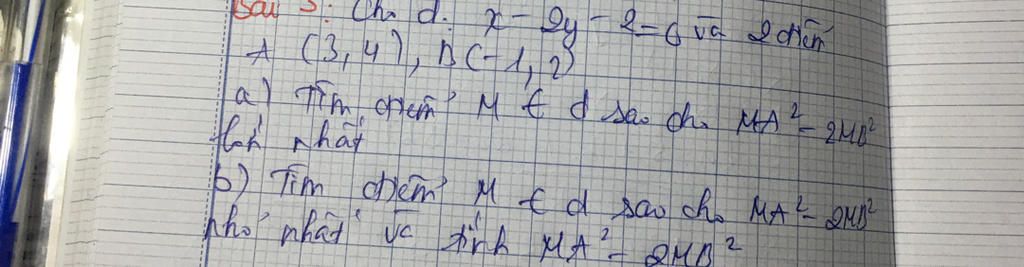 Bài 3: Cho d: x - 2y - 2 = 0 và 2 điểm
A (3, 4), B(-1, 2)
a) Tìm điểm M ∈ d sao cho MA² - 2MB²
lớn nhất
b) Tìm điểm M ∈ d sao cho MA² - 2MB²
nhỏ nhất và tính MA² - 2MB²